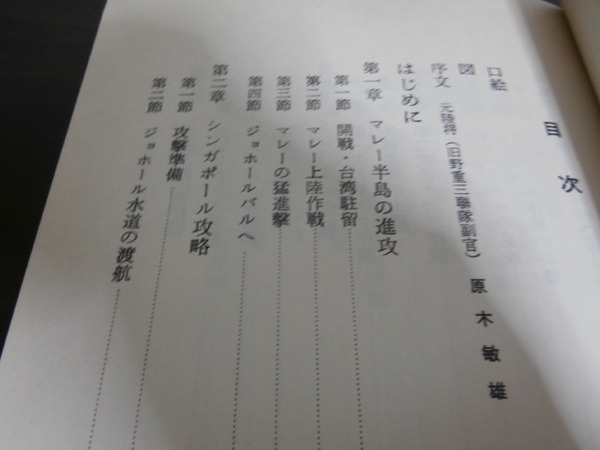 目次
口絵
図
序文 元陸将（旧野重三聯隊副官） 原木敏雄
はじめに
第一章 マレー半島の進攻
第一節 開戦・台湾駐留
第二節 マレー上陸作戦
第三節 マレーの猛進撃
第四節 ジョホールバルへ
第二章 シンガポール攻略
第一節 攻撃準備
第二節 ジョホール水道の渡航